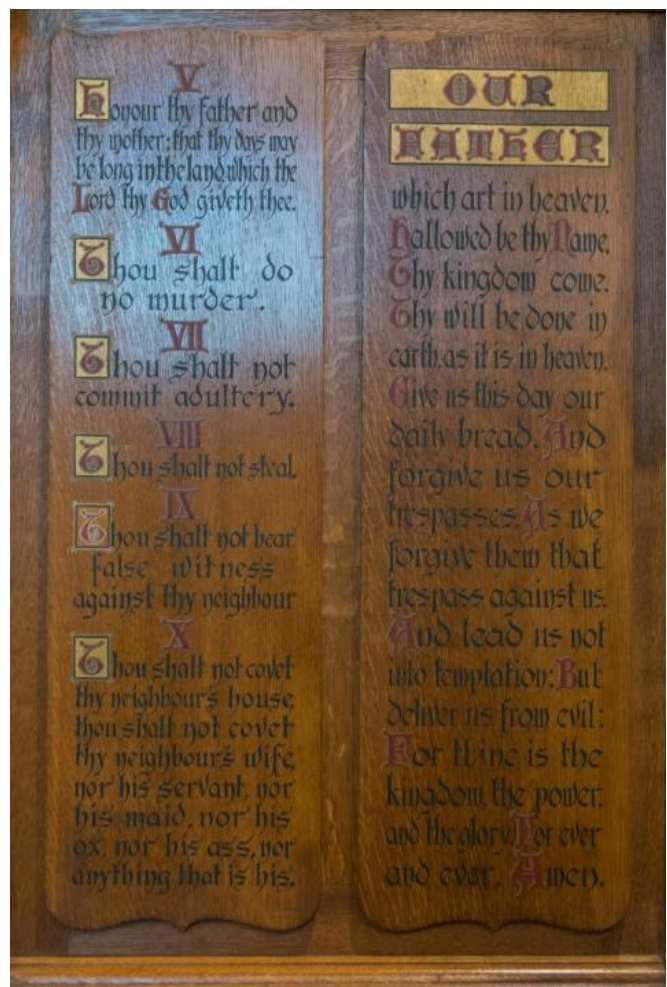 V
Honour thy father and
thy mother; that thy days may
be long in the land which the
Lord thy God giveth thee.
VI
Thou shalt do
no murder.
VII
Thou shalt not
commit adultery.
VIII
Thou shalt not steal.
IX
Thou shalt not bear
false witness
against thy neighbour
X
Thou shalt not covet
thy neighbour's house,
thou shalt not covet
thy neighbour's wife,
nor his servant, nor
his maid, nor his
ox, nor his ass, nor
anything that is his.
OUR
FATHER
which art in heaven,
Hallowed be thy Name,
Thy kingdom come.
Thy will be done in
earth, as it is in heaven.
Give us this day our
daily bread. And
forgive us our
trespasses, As we
forgive them that
trespass against us.
And lead us not
into temptation: But
deliver us from evil:
For thine is the
kingdom, the power,
and the glory, For ever
and ever. Amen.